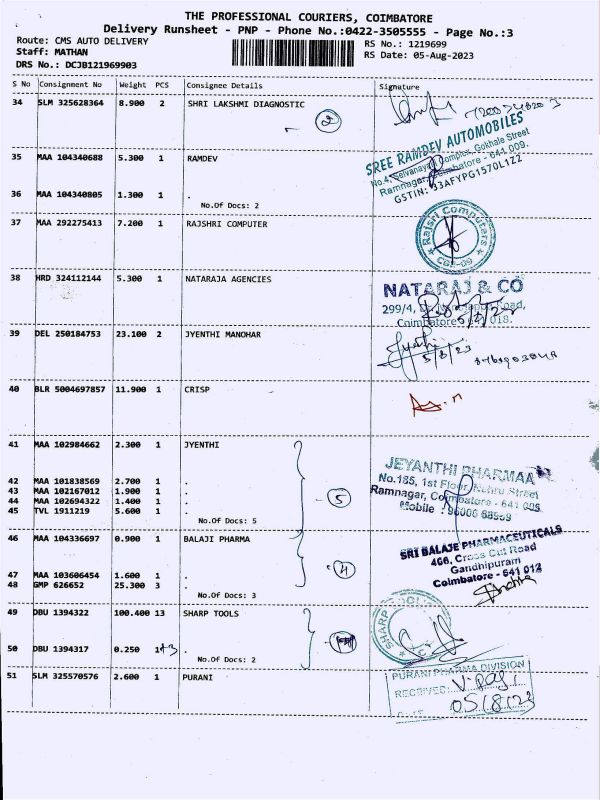 THE PROFESSIONAL COURIERS, COIMBATORE
Delivery Runsheet - PNP - Phone No.:0422-3505555 - Page No.:3
Route: CMS AUTO DELIVERY
RS No.: 1219699
Staff: MATHAN
RS Date: 05-Aug-2023
DRS No.: DCJB121969903
S No Consignment No Weight PCS Consignee Details Signature
34 SLM 325628364 8.900 2 SHRI LAKSHMI DIAGNOSTIC
2
SREE RAMDEV AUTOMOBILES
No.4, Selvanayaki Complex, Gokhale Street
Ramnagar, Coimbatore - 641 009.
GSTIN: 33AFYPG1570L1ZZ
35 MAA 104340688 5.300 1 RAMDEV
36 MAA 104340805 1.300 1 .
No.Of Docs: 2
37 MAA 292275413 7.200 1 RAJSHRI COMPUTER
Rajsri Computers
CBE-09
38 HRD 324112144 5.300 1 NATARAJA AGENCIES
NATARAJ & CO
299/4, Road,
Coimbatore 641 018.
39 DEL 250184753 23.100 2 JYENTHI MANOHAR
Jyenthi
5/8/23
40 BLR 5004697857 11.900 1 CRISP
41 MAA 102984662 2.300 1 JYENTHI
42 MAA 101838569 2.700 1 .
43 MAA 102167012 1.900 1 .
44 MAA 102694322 1.400 1 .
45 TVL 1911219 5.600 1 .
No.Of Docs: 5
5
JEYANTHI PHARMAA
No.185, 1st Floor, Nehru Street
Ramnagar, Coimbatore - 641 009
Mobile : 96006 68959
46 MAA 104336697 0.900 1 BALAJI PHARMA
47 MAA 103606454 1.600 1 .
48 GMP 626652 25.300 3 .
No.Of Docs: 3
4
SRI BALAJE PHARMACEUTICALS
466, Cross Cut Road
Gandhipuram
Coimbatore - 641 012
49 DBU 1394322 100.400 13 SHARP TOOLS
50 DBU 1394317 0.250 1 .
No.Of Docs: 2
SHARP
51 SLM 325570576 2.600 1 PURANI
PURANI PHARMA DIVISION
RECEIVED:
DATE
05/8/23